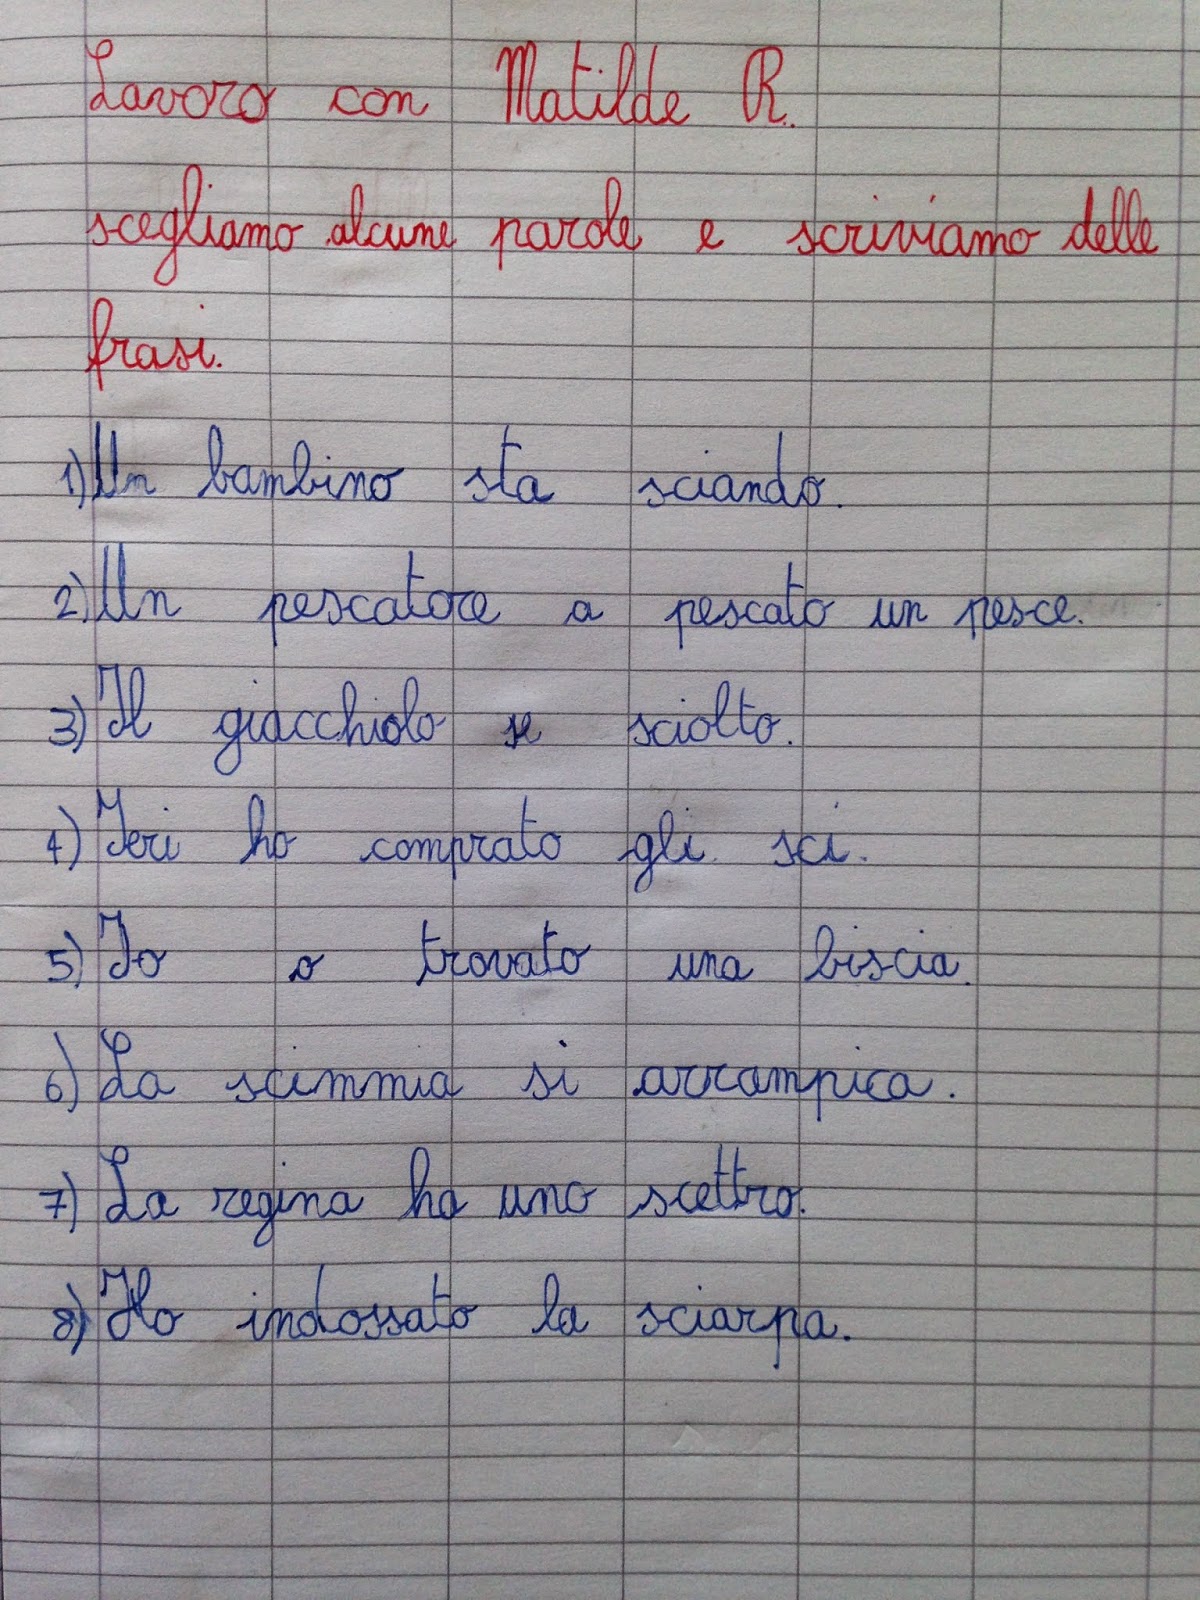 Lavoro con Matilde R.
scegliamo alcune parole e scriviamo delle
frasi.
1) Un bambino sta sciando.
2) Un pescatore a pescato un pesce.
3) Il giacchiolo se sciolto.
4) Ieri ho comprato gli sci.
5) Io o trovato una biscia.
6) La scimmia si arrampica.
7) La regina ha uno scettro.
8) Ho indossato la sciarpa.